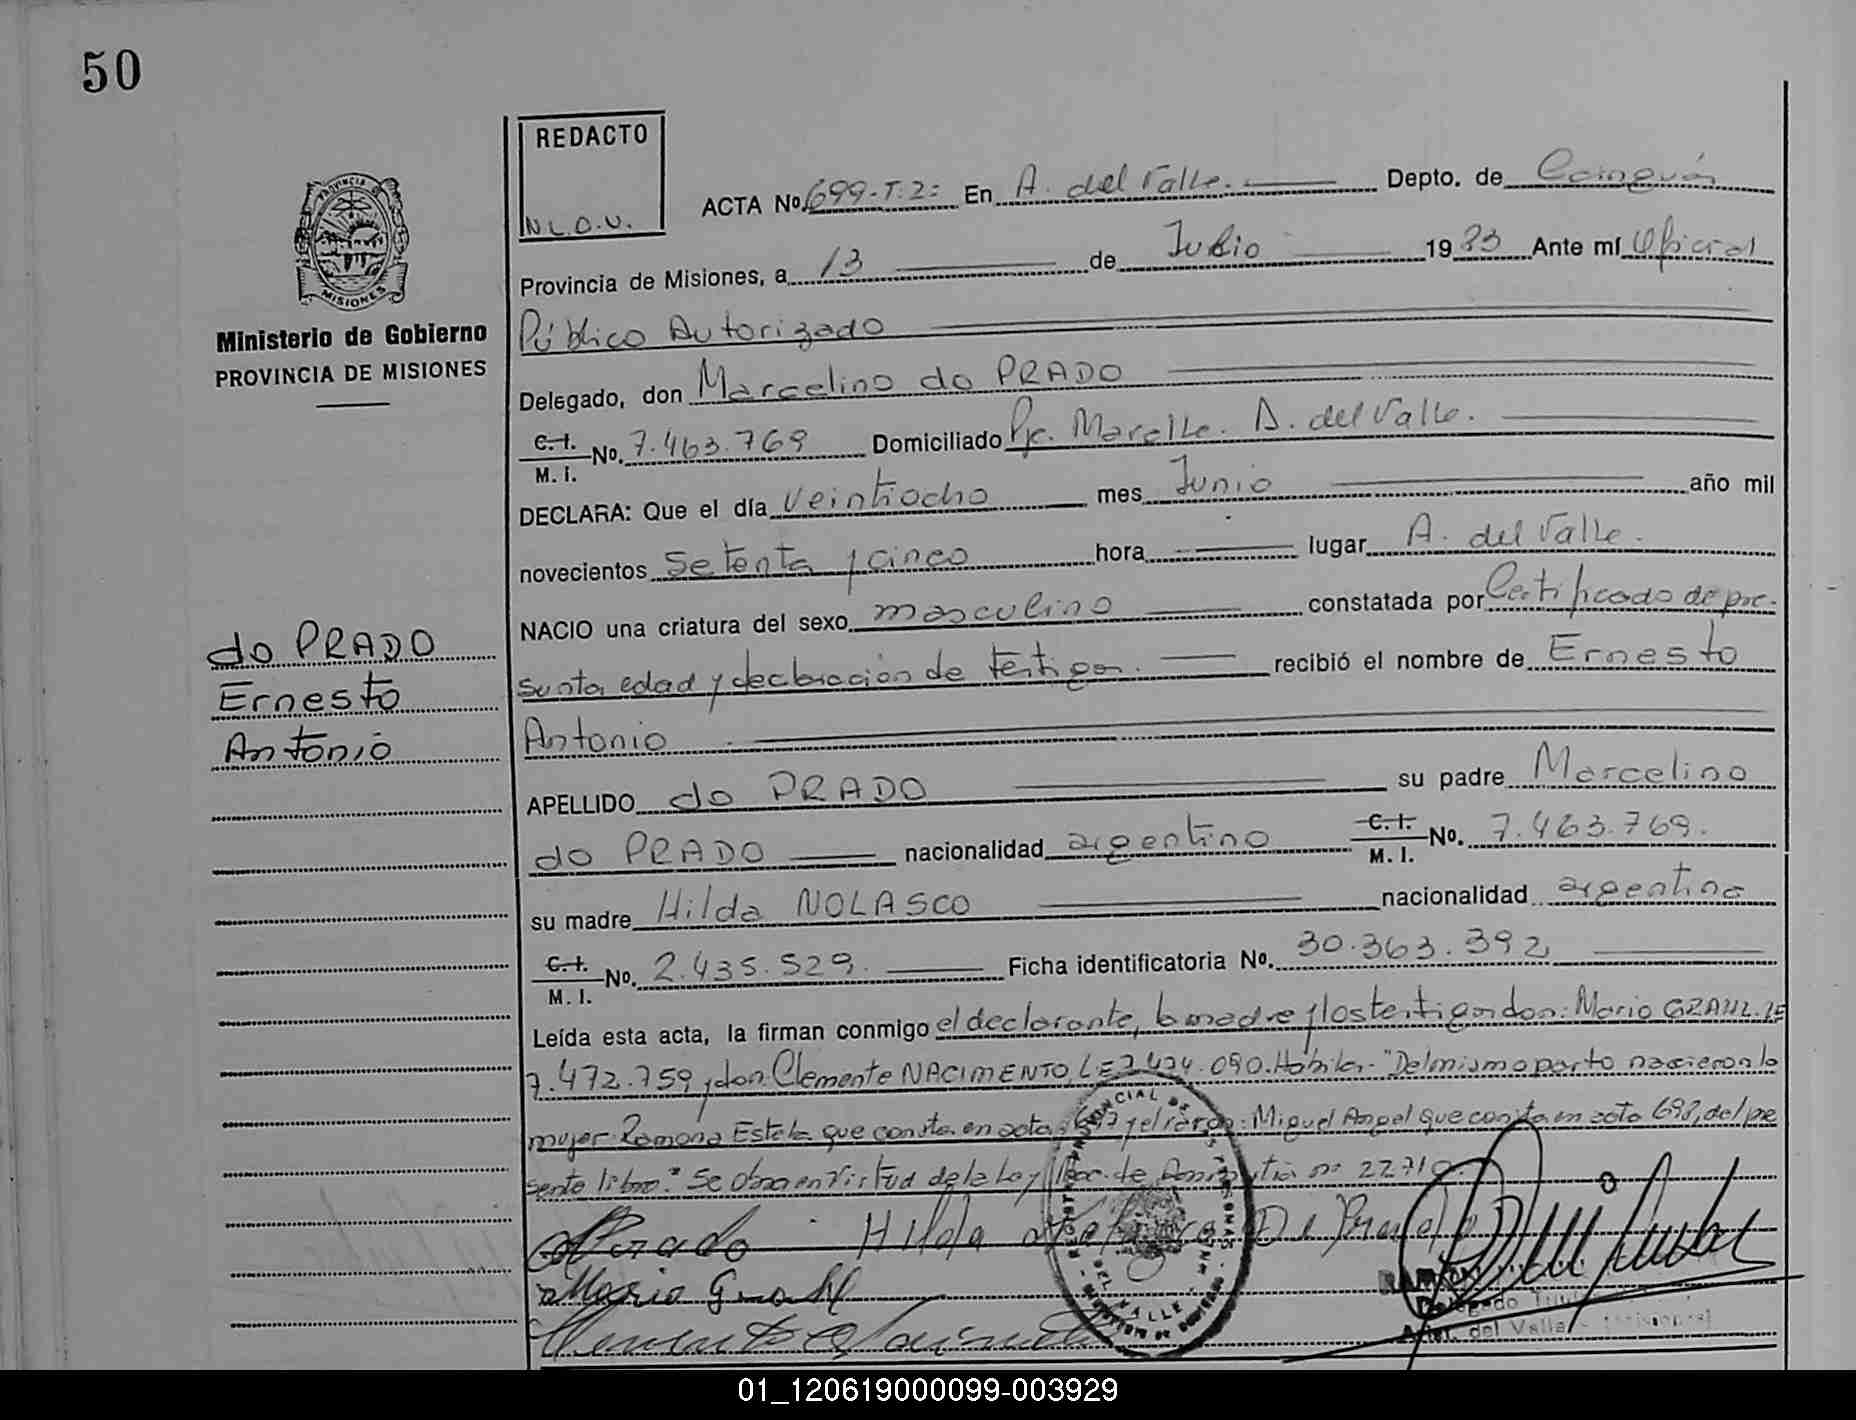 50
REDACTO
N.L.O.V.
ACTA No. 699-T.2: En A. del Valle. Depto. de Cainguás
Provincia de Misiones, a 13 de Julio 1983 Ante mí Oficial
PROVINCIA DE
MISIONES
Ministerio de Gobierno
PROVINCIA DE MISIONES
Público Autorizado
Delegado, don Marcelino do PRADO
C. I. No. 7.463.769 Domiciliado Pje. Marelle. A. del Valle.
M. I.
DECLARA: Que el día veintiocho mes Junio año mil
novecientos setenta y cinco hora lugar A. del Valle.
NACIO una criatura del sexo masculino constatada por Certificado de pre-
sunta edad y declaración de testigos. recibió el nombre de Ernesto
Antonio
do PRADO
Ernesto
Antonio
APELLIDO do PRADO su padre Marcelino
do PRADO nacionalidad argentino C. I. No. 7.463.769.
M. I.
su madre Hilda NOLASCO nacionalidad argentina
C. I. No. 2.435.529. Ficha identificatoria No. 30.363.392
M. I.
Leída esta acta, la firman conmigo el declarante, la madre y los testigos don: Mario GRAHL. LE
7.472.759 y don: Clemente NACIMENTO, LE 7.474.090. Hábiles.- "Del mismo parto nacieron la
mujer Ramona Estela que consta en acta 697 y el varón: Miguel Angel que consta en acta 698, del pre
sente libro." Se obra en virtud de la Ley Nac. de Amnistía nº 22710
Prado Hilda De Prado
Mario Grahl
Delegado Titular
Arist. del Valle - (Misiones)
01_120619000099-003929